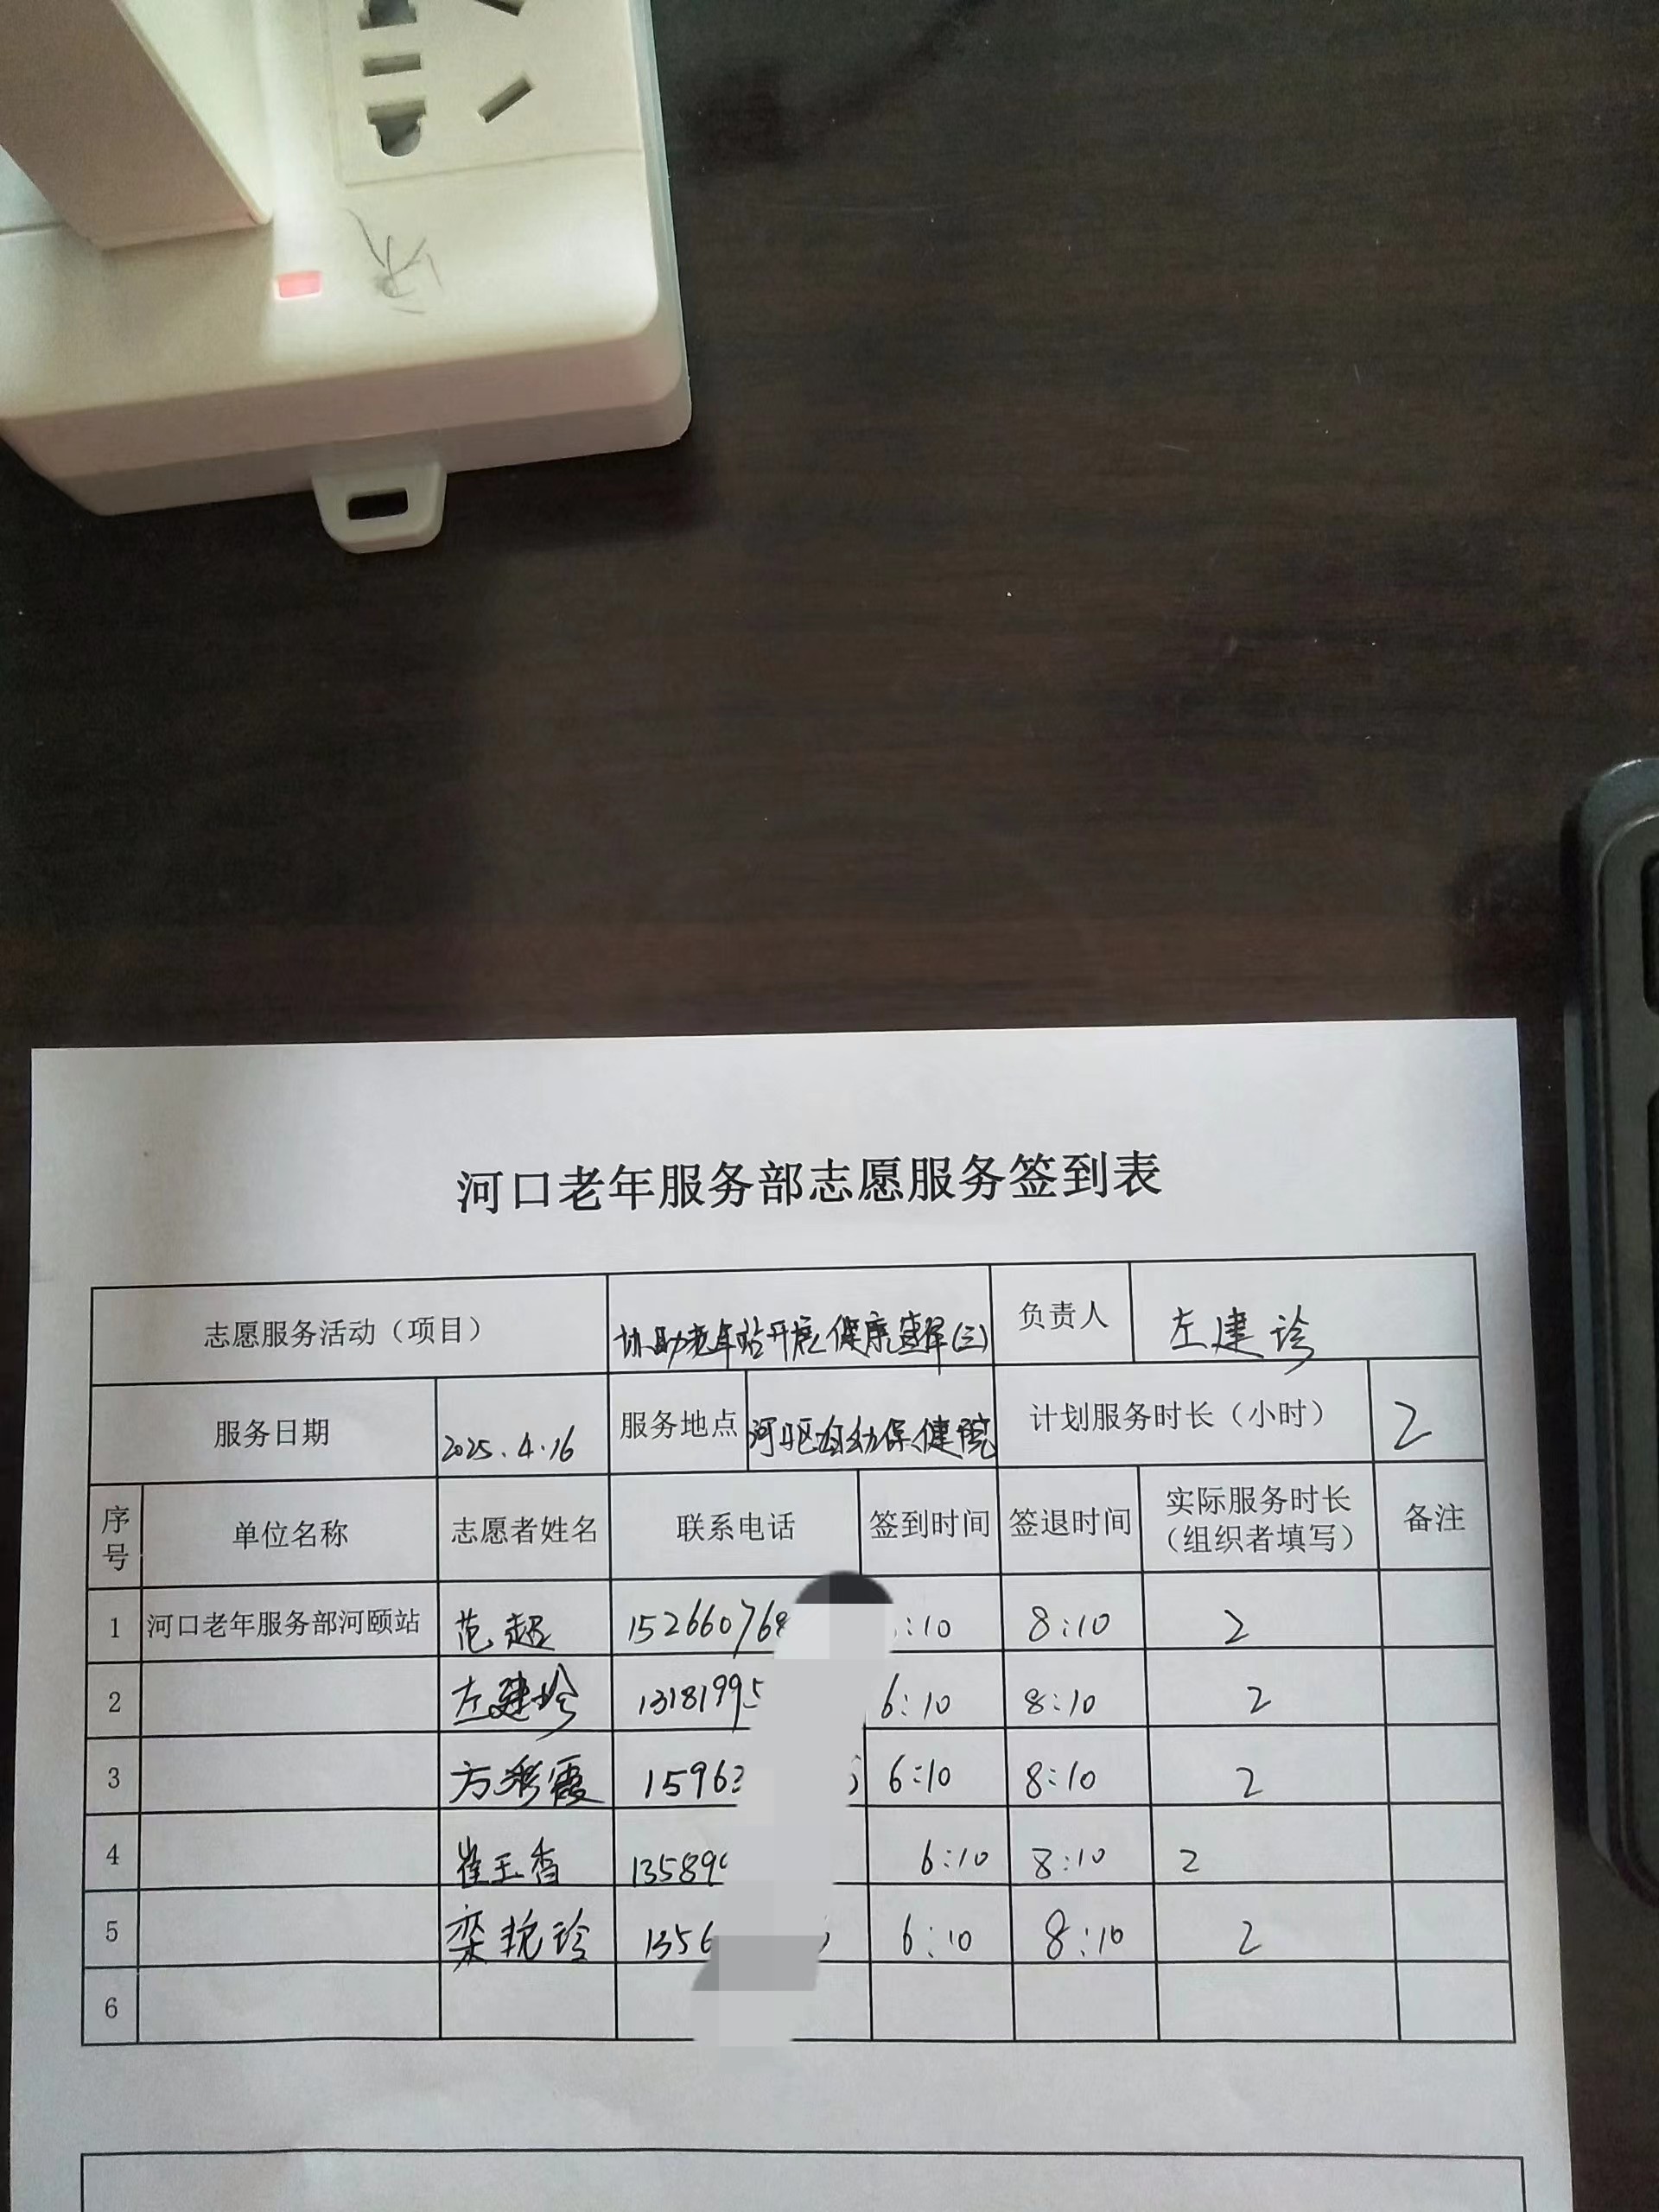 河口老年服务部志愿服务签到表
志愿服务活动（项目） 协助老年站开展健康 (三) 负责人 左建珍
服务日期 2025.4.16 服务地点 河口区妇幼保健院 计划服务时长（小时） 2
序号 单位名称 志愿者姓名 联系电话 签到时间 签退时间 实际服务时长（组织者填写） 备注
1 河口老年服务部河颐站 范超 15266076 :10 8:10 2
2 左建珍 1318199 6:10 8:10 2
3 方彩霞 1596 6:10 8:10 2
4 崔玉香 13589 6:10 8:10 2
5 栾艳玲 1356 6:10 8:10 2
6